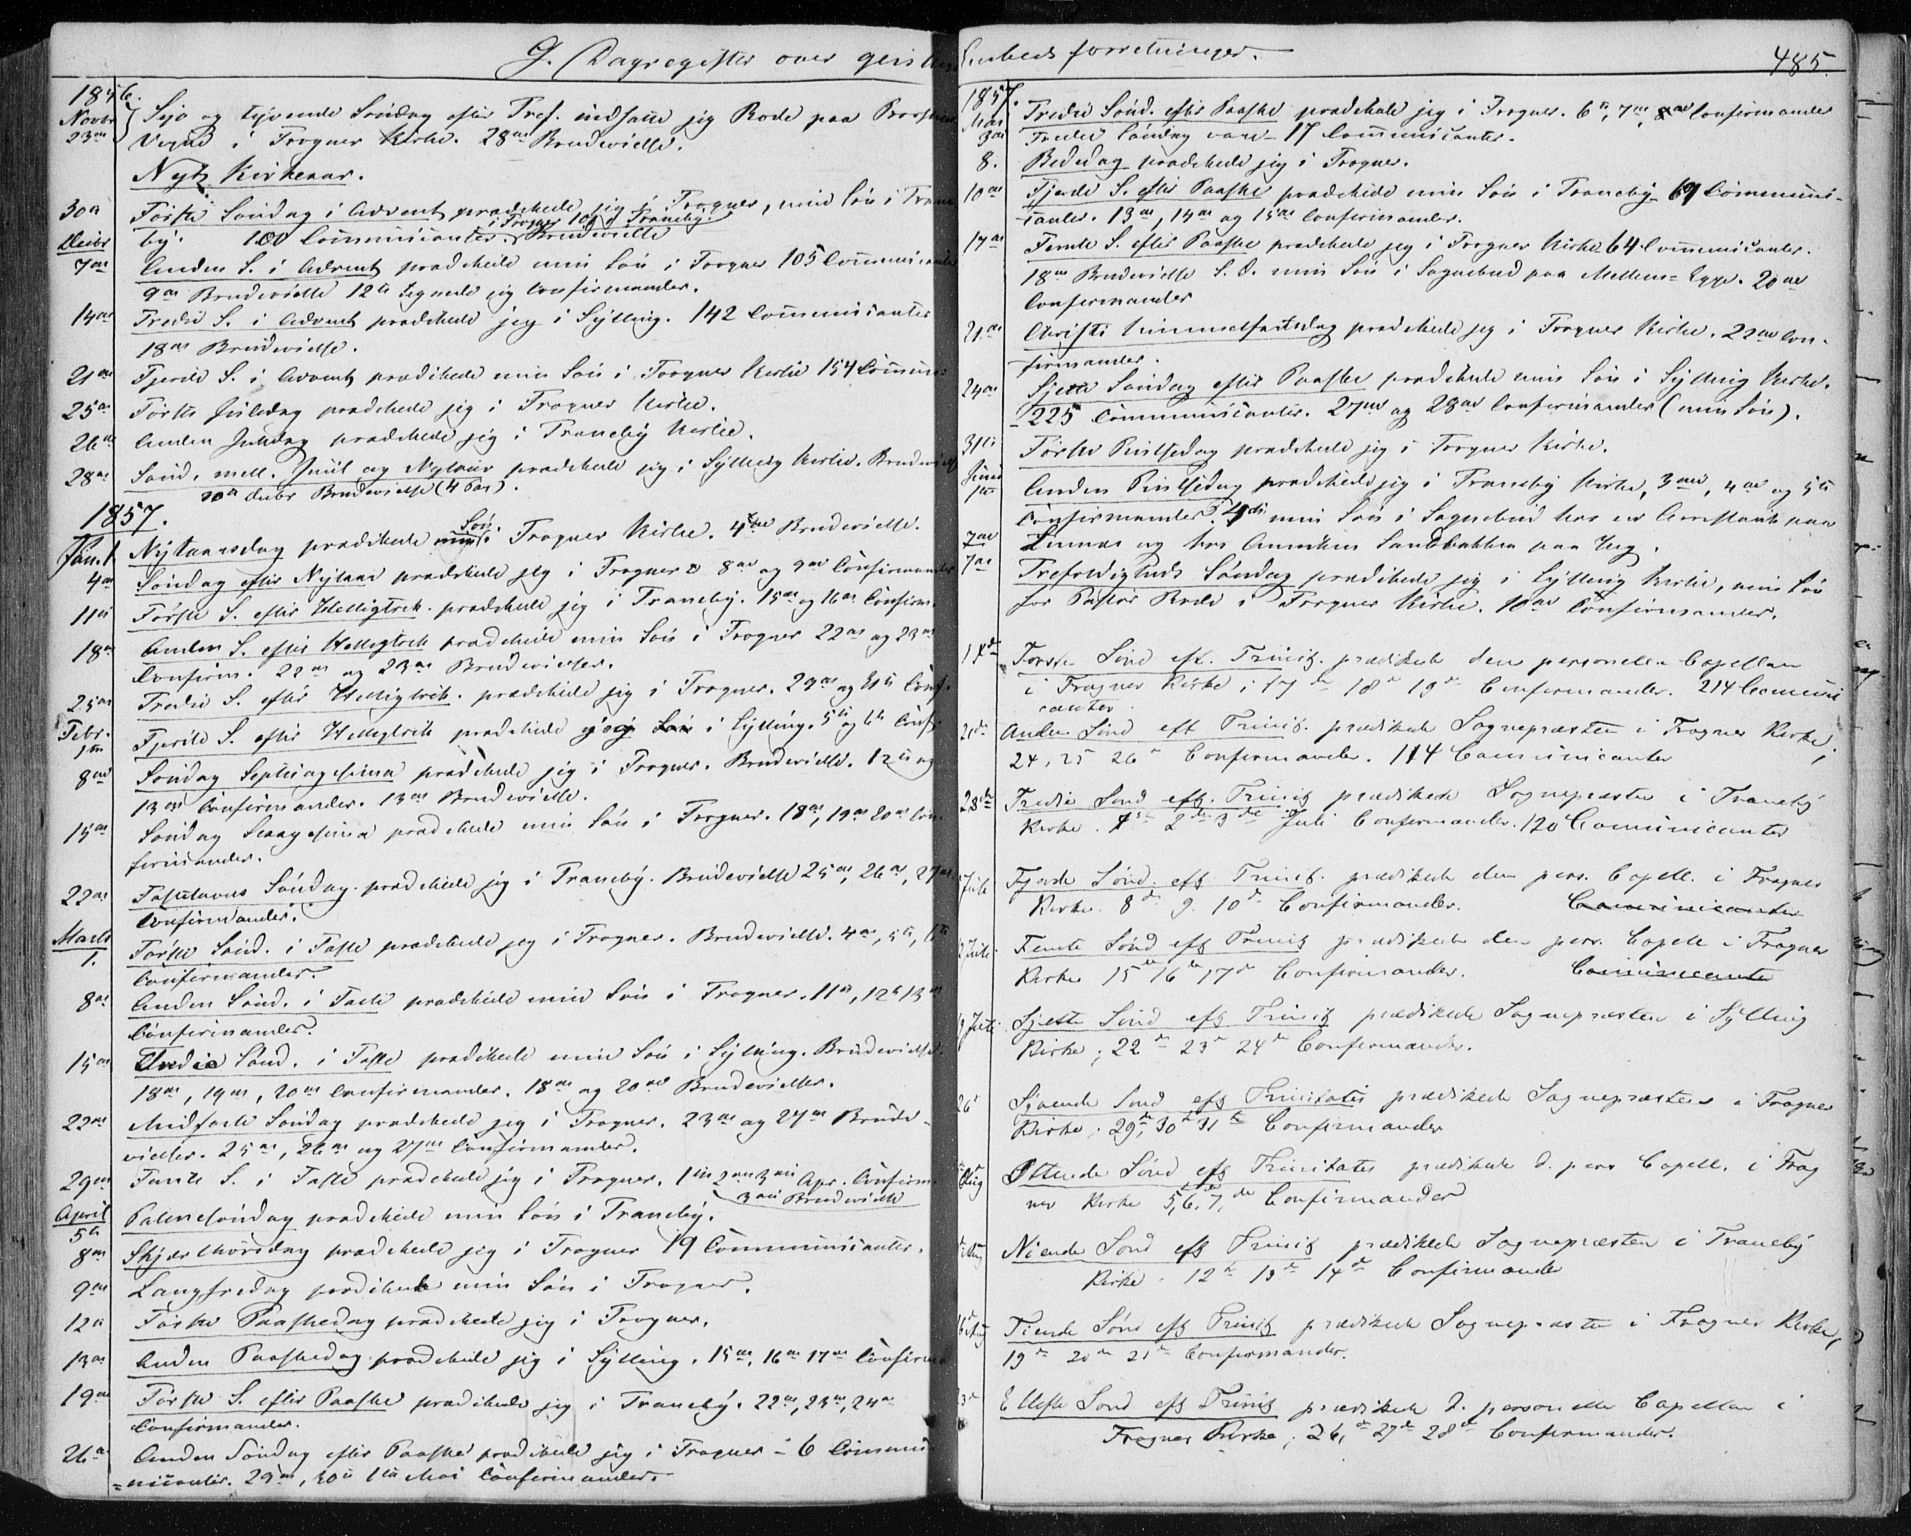 G. Dagregister over geistlige Embedsforretninger.
485.
1856.
Novbr 23de Syv og tyvende Søndag efter Tref. indsatte jeg Rode paa Provstens
Vegne i Frogner Kirke. 28de Brudevielse.
Nyt Kirkeaar.
30te Første Søndag i Advent prædikede jeg i Frogner, min Søn i Trane
by. 100 Communicanter i Frogner 101 i Traneby. Brudevielse
Decbr 7de Anden S. i Advent prædikede min Søn i Frogner 105 Communicanter
9de Brudevielse 12te tegnede jeg Confirmander.
14de Tredie S. i Advent prædikede jeg i Sylling. 142 Communicanter
18de Brudevielse.
21de Fjerde S. i Advent prædikede min Søn i Frogner Kirke 154 Commun:
25de Første Juledag prædikede jeg i Frogner Kirke.
26de Anden Juledag prædikede jeg i Traneby Kirke.
28de Sønd. mell. Juul og Nytaar prædikede jeg i Sylling Kirke. Brudevielse
30te Decbr Brudevielse (4 Par).
1857.
Jan. 1. Nytaarsdag prædikede min Søn i Frogner Kirke. 4de Brudevielse.
4de Søndag efter Nytaar prædikede jeg i Frogner 8de og 9de Confirmander
11te Første S. efter Helligtrek. prædikede jeg i Traneby. 15de og 16de Confirm.
18de Anden S. efter Helligtrek prædikede min Søn i Frogner 22de og 23de
Confirm. 22de og 23de Brudevielser.
25de Tredie S. efter Helligtrek. prædikede jeg i Frogner. 29de og 31te Conf.
Febr. 1ste Fjerde S. efter Helligtrek prædikede jeg i Sylling. 5te og 6te Conf.
8de Søndag Septuagesima prædikede jeg i Frogner. Brudevielse. 12te og
13de Confirmander. 13de Brudevielse.
15de Søndag Sexagesima prædikede min Søn i Frogner. 18de, 19de 20de Con
firmander.
22de Fastelavns Søndag prædikede jeg i Traneby. Brudevielse 25de, 26de, 27de
Confirmander.
Marts 1. Første Sønd. i Faste prædikede jeg i Frogner. Brudevielse. 4de, 5te, 6te
Confirmander.
8de Anden Sønd. i Faste prædikede min Søn i Frogner. 11te, 12te 13de
Confirmander.
15de Tredie Sønd. i Faste prædikede min Søn i Sylling. Brudevielse.
18de, 19de, 20de Confirmander. 18de og 20de Brudevielser.
22de Midfaste Søndag prædikede jeg i Frogner. 23de og 24de Brude-
vielser. 25de, 26de og 27de Confirmander.
29de Femte S. i Faste prædikede jeg i Frogner. 1ste 2den 3die Apr. Confirm.
3die Brudevielse
April 5te Palmesøndag prædikede min Søn i Traneby.
8de Skjærthorsdag prædikede jeg i Frogner 19 Communicanter.
9de Langfredag prædikede min Søn i Frogner.
12te Første Paaskedag prædikede jeg i Frogner.
13de Anden Paaskedag prædikede jeg i Sylling. 15de, 16de 17de Confirm
19de Første S. efter Paaske prædikede jeg i Traneby. 22de, 23de, 24de
Confirmander.
26de Anden Søndag efter Paaske prædikede jeg i Frogner - 6 Commu
=nicanter. 29de, 30te 1ste Mai Confirmander.
1857.
Mai 3die Tredie Sønd. efter Paaske prædikede jeg i Frogner. 6te, 7de, 8de Confirmander
Tredie Søndag vare 17 Communicanter.
8. Bededag prædikede jeg i Frogner.
10de Fjerde S. efter Paaske prædikede min Søn i Traneby 69 Communi-
canter. 13de, 14de og 15de Confirmander.
17de Femte S. efter Paaske prædikede jeg i Frogner Kirke 64 Communicanter.
18de Brudevielse S. D. min Søn i Sognebud paa Mellem=Egge. 20de
Confirmander
21de Christi Himmelfartsdag prædikede jeg i Frogner Kirke. 22de Con-
firmander.
24de Sjette Søndag efter Paaske prædikede min Søn i Sylling Kirke.
225 Communicanter. 27de og 28de Confirmander (min Søn).
31te Første Pintsedag prædikede jeg i Frogner Kirke.
Juni 1ste Anden Pintsedag prædikede jeg i Traneby Kirke, 3die, 4de og 5te
Confirmander. 4de min Søn i Sognebud hos en Arrestant paa
Linnes og hos Annichen Sandbakken paa Eeg.
7de Trefoldigheds Søndag prædikede jeg i Sylling Kirke, min Søn
for Pastor Rode i Frogner Kirke. 10de Confirmander.
14de Første Sønd eft. Trinit. prædikede den personelle Capellan
i Frogner Kirke; 17de 18de 19de Confirmander. 214 Communi
canter.
21de Anden Sønd eft Trinit. prædikede Sognepræsten i Frogner Kirke;
24, 25 26de Confirmander. 114 Communicanter
28de Tredie Sønd eft. Trinit prædikede Sognepræsten i Traneby
Kirke. 1ste 2den 3die Juli Confirmander. 120 Communicanter
Juli Fjerde Sønd. eft Trinit. prædikede den pers. Capell. i Frogner
Kirke. 8de 9. 10de Confirmander. Communicanter
12 Juli Femte Sønd eft Trinit prædikede den pers. Capell i Frogner
Kirke 15de 16de 17de Confirmander. Communicanter
19 Juli Sjette Sønd eft Trinit prædikede Sognepræsten i Sylling
Kirke; 22de 23de 24de Confirmander.
26de Syvende Sønd eft Trinitatis prædikede Sognepræsten i Frogner
Kirke; 29de, 30te 31te Confirmander
Aug Ottende Sønd eft Trinitatis prædikede d. pers Capell. i Frog
ner Kirke 5, 6, 7de Confirmander
Aug Niende Sønd eft Trinit prædikede Sognepræsten i Traneby
Kirke. 12te 13de 14de Confirmander
16 Aug Tiende Sønd eft Trinit prædikede Sognepræsten i Frogner Kirke,
19de 20de 21de Confirmander.
23de Ellefte Sønd eft Trinit prædikede d. personelle Capellan i
Frogner Kirke; 26, de 27de 28de Confirmander.